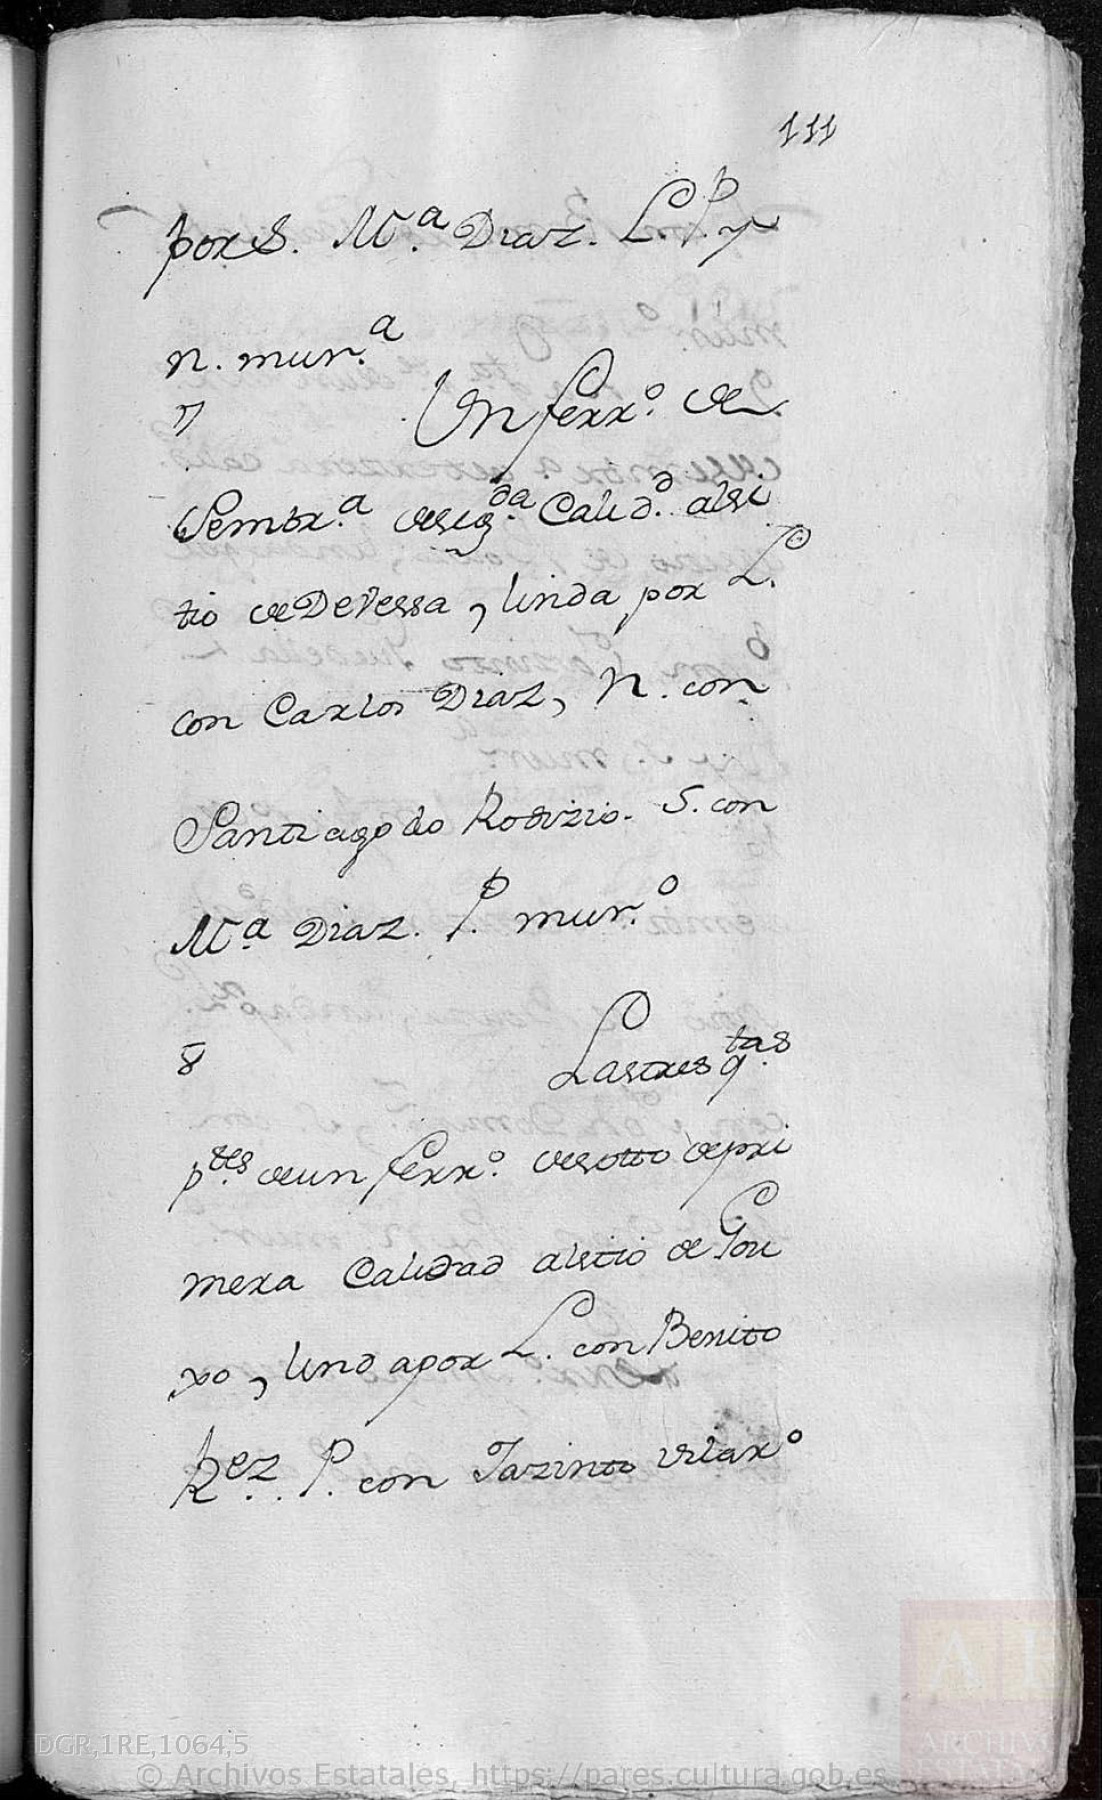 111
por S. M.ª Diaz. L. P. y
n. mur.ª
7 Un ferr.º de
Sembr.ª de seg.da Calid.d al si
tio de Devessa, linda por L.
con Carlos Diaz, N. con
Santiago do Rodizio. S. con
M.ª Diaz. P. mur.º
8 Las tres q.tas
p.tes de un ferr.º de sotto de pri
mera Calidad al sitio de Gou
xo, linda por L. con Benito
Rez. P. con Jazinto Vilar.º
DGR,1RE,1064,5
© Archivos Estatales, https://pares.cultura.gob.es